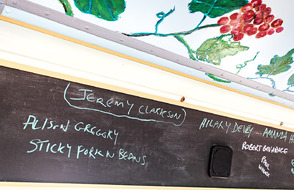 JEREMY CLARKSON
ALISON GREGORY
STICKY FORK N BEANS.
HILARY DEVEY - AMANDA H
ROBERT
PAUL